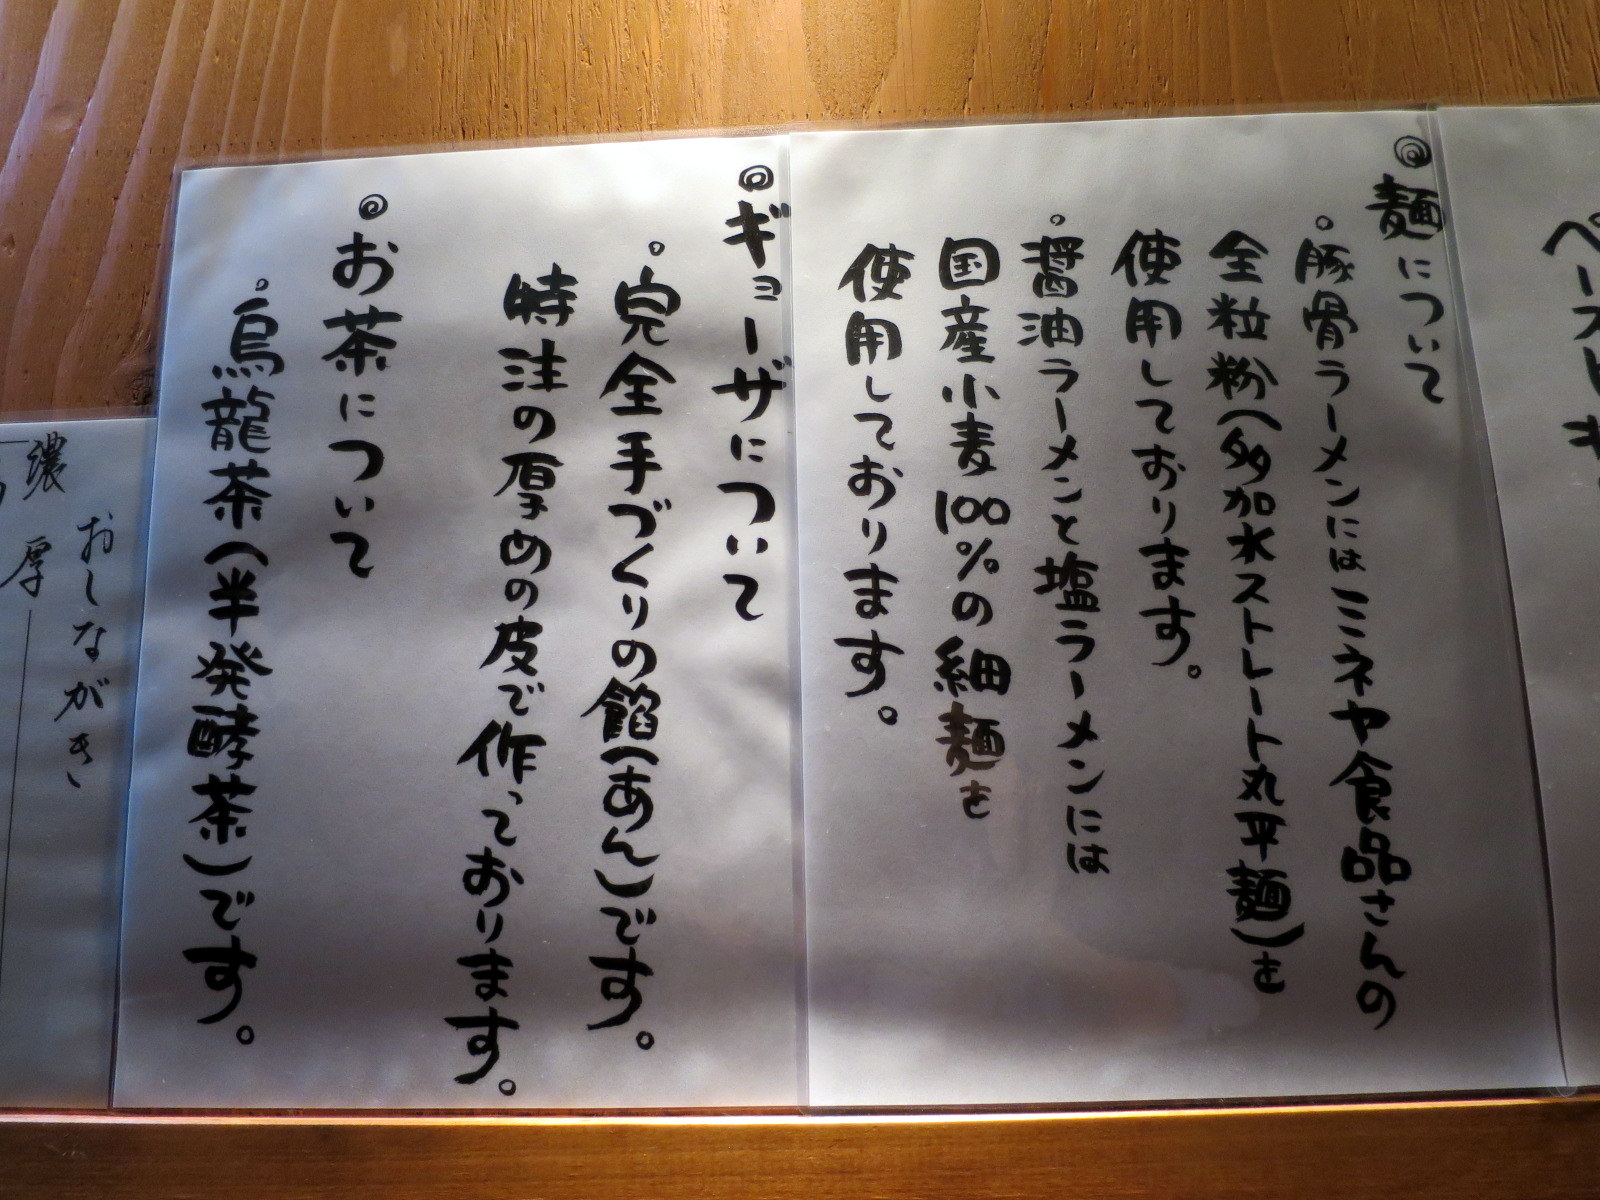 ペースト
◎麺について
。豚骨ラーメンにはミネヤ食品さんの
全粒粉(多加水ストレート丸平麺)を
使用しております。
。醤油ラーメンと塩ラーメンには
国産小麦100%の細麺を
使用しております。
◎ギョーザについて
。完全手づくりの餡(あん)です。
特注の厚めの皮で作っております。
◎お茶について
。烏龍茶(半発酵茶)です。
おしながき
濃厚